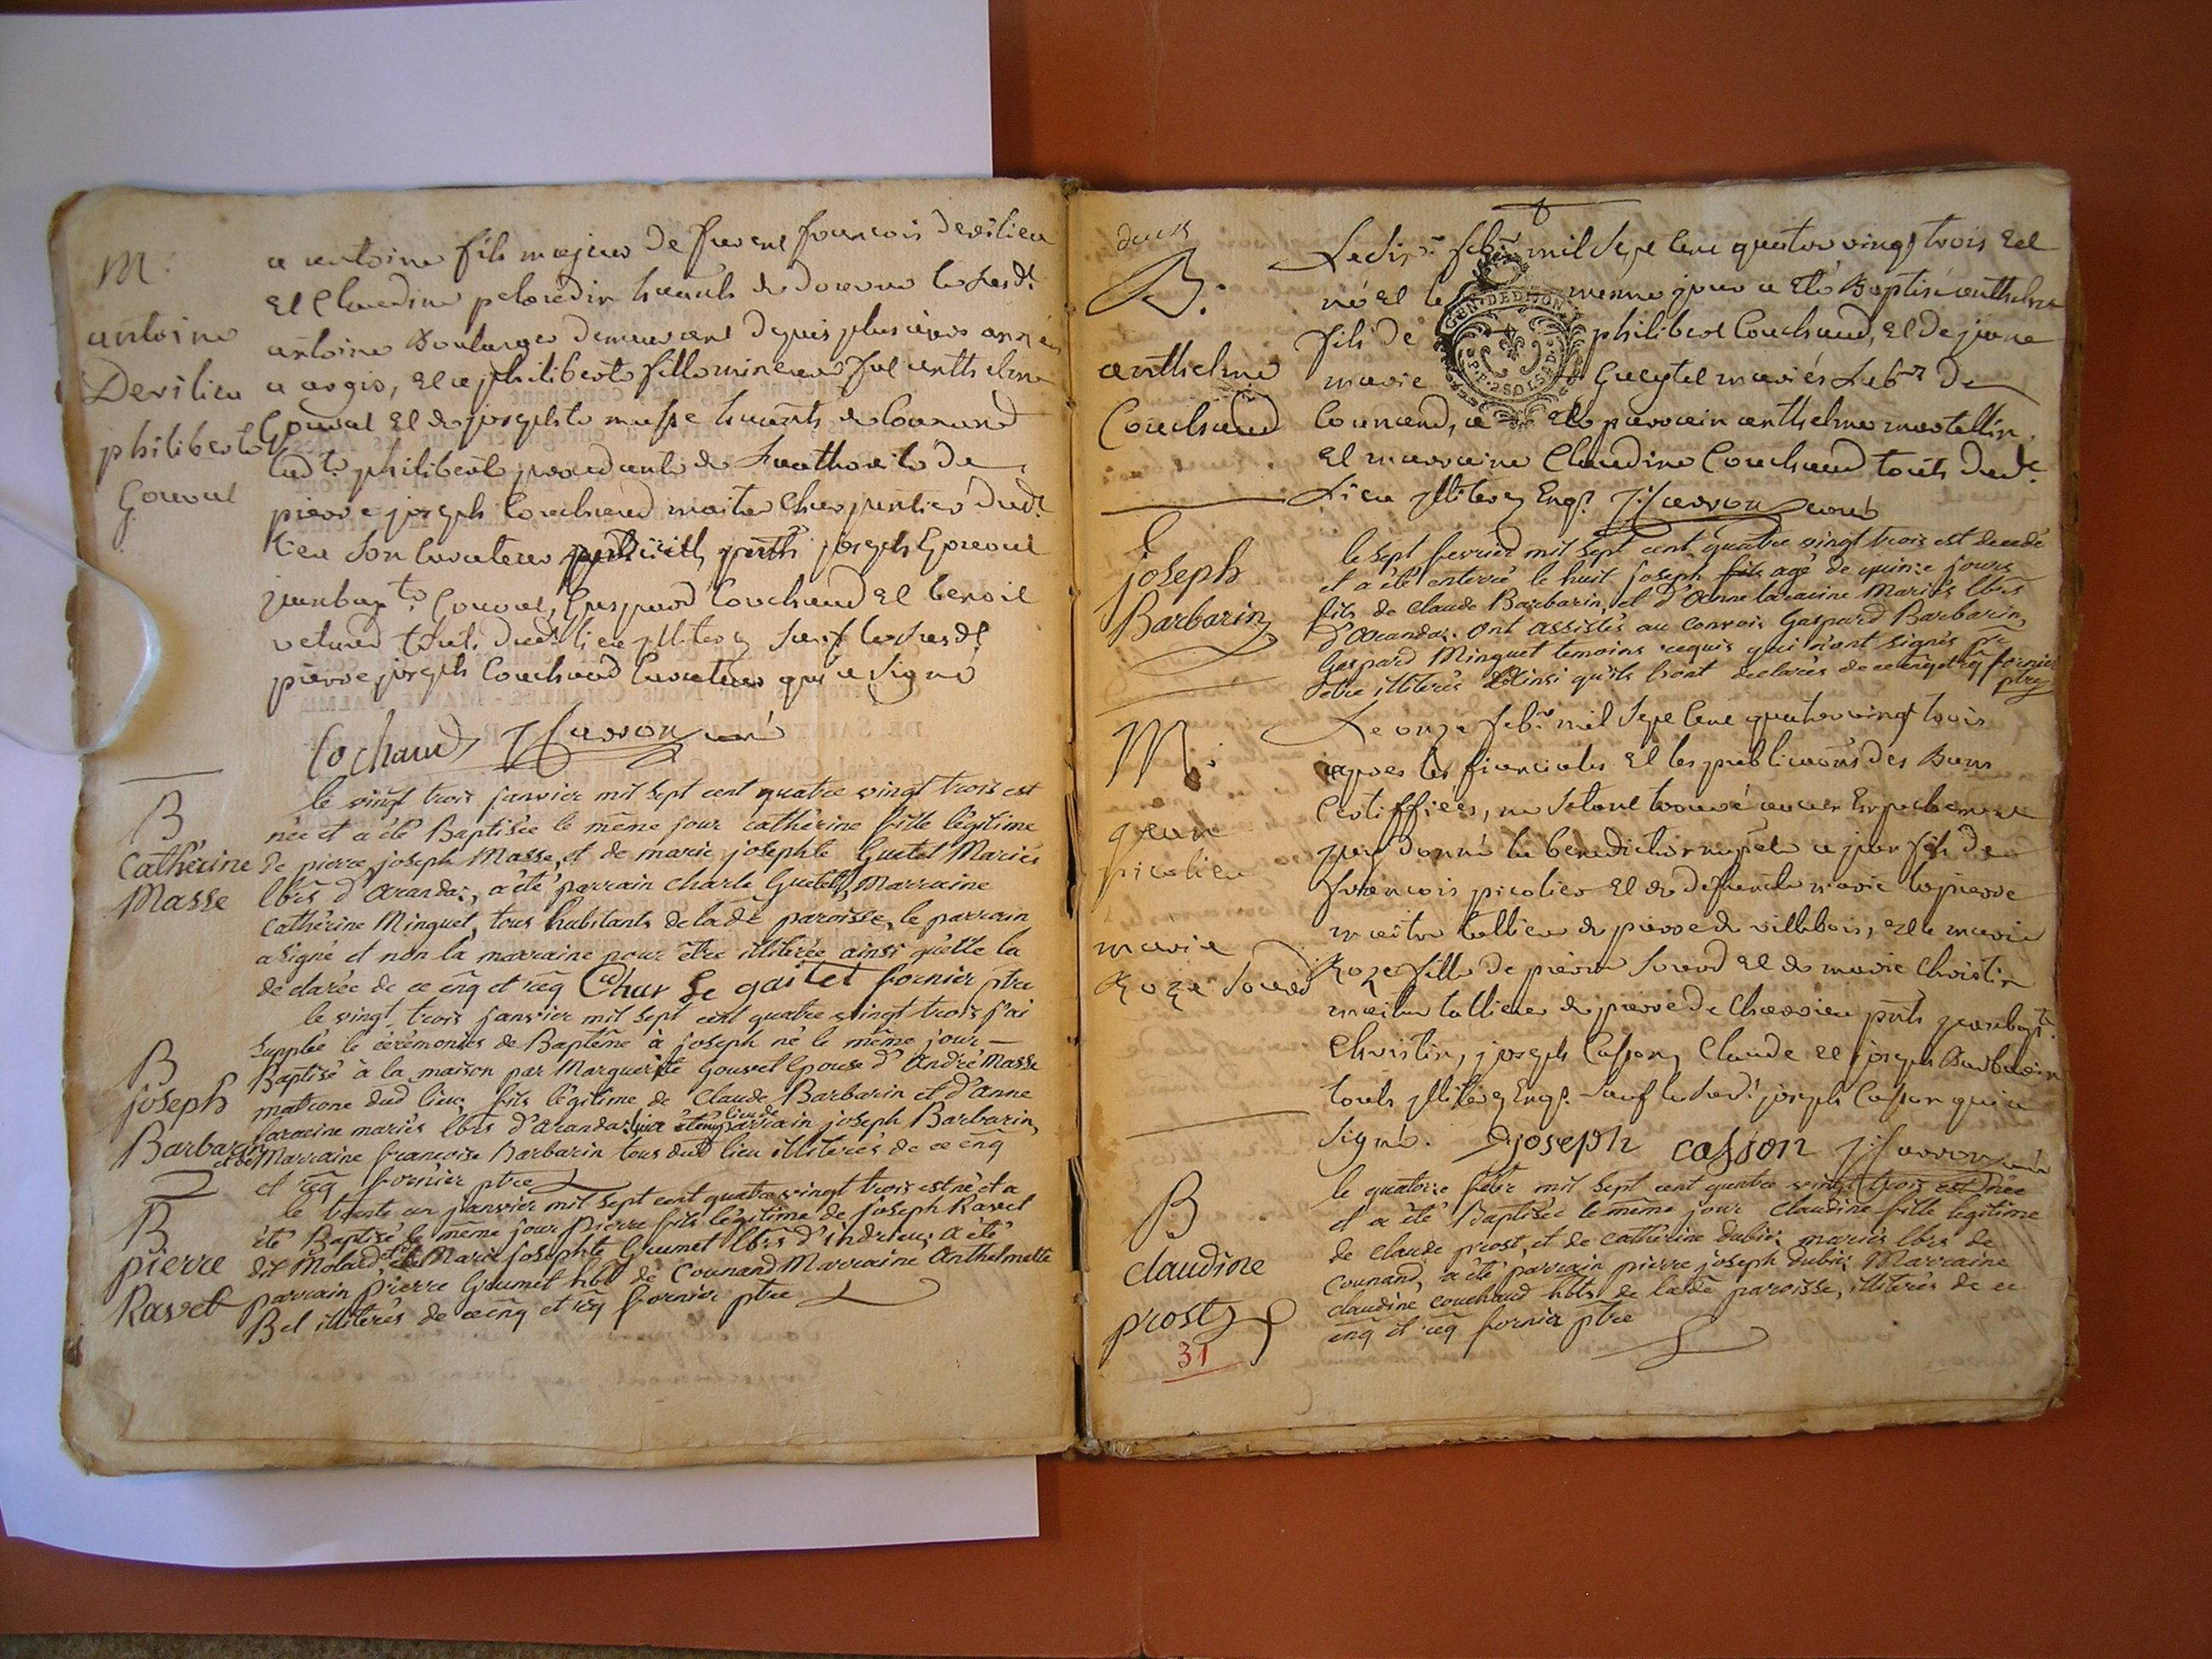 M:
antoine
Devilieu
philiberte
Gouvel
a antoine fils majeur de françois devilieu
et Claudine habitants de
antoine Boulanger demeurant depuis plusieurs
a argis, et a philiberte fille mineure anthelme
Gouvel et de josephte masse habitants de Counand
lad.te philiberte procedante de Lauthorité de
pierre joseph Couchaud maitre Charpentier dud.
lieu Son Curateur joseph Gouvel
jeanbap.te Gouvel, Gaspard Couchaud et benoit
dud. lieu
pierre joseph Couchaud Curateur qui a Signé
Cochaud
B
Cathérine
Masse
le vingt trois janvier mil sept cent quatre vingt trois est
née et a été Baptisée le même jour cathérine fille légitime
de pierre joseph Masse, et de marie josephte Guetet Mariés
lbrs d'arandaz, a été parrain charle Guetet, Marraine
Cathérine Minguet, tous habitants de lade paroisse, le parrain
a signé et non la marraine pour être illiterée ainsi quelle la
declarée de ce enq et req Char Le gaitet fornier ptre
B
joseph
Barbarin
le vingt trois janvier mil sept cent quatre vingt trois j'ai
supplée le cérémonies de Baptême à joseph né le même jour
Baptisé à la maison par Marguerite Gouvet epouse d'André Masse
matrone dud lieu, fils légitime de Claude Barbarin et d'anne
laracine mariés lbrs d'aranda parrain joseph Barbarin,
et de Marraine françoise Barbarin tous dud lieu illiterés de ce enq
et req fornier ptre
B
pierre
Ravet
le trente un janvier mil sept cent quatre vingt trois est né et a
été Baptisé le même jour Pierre fils légitime de joseph Ravet
dit Molard, et de Marie josephte Grumet lbrs d'indrieu; a été
parrain Pierre Grumet hbt de Counand Marraine Anthelmette
Bel illiterés de ce enq et req fornier ptre
deux
B.
anthelme
Couchaud
Le mil Sept Cent quatre vingt trois est
né et le meme jour a été Baptisé anthelme
fils de philibert Couchaud, et de jeane
marie Gueytet mariés Lab.rs de
Counand, a été parrain anthelme martellin
et marraine Claudine Couchaud touts dud.
Lieu
GEN·DEDIION
joseph
Barbarin
le sept fevrier mil sept cent quatre vingt trois est decedé
et a été enterré le huit joseph fils agé de quinze jours
fils de Claude Barbarin, et d'Anne laracine Mariés lbrs
d'Arandaz. Ont assistés au convoi Gaspard Barbarin,
Gaspard Minguet temoins requis qui n'ont signés pr
être illiterés ainsi qu'ils l'ont declarés de ce enq et req fornier
ptre
M:
jean
picolier
marie
Roze Sourd
Le onze feb.r mil Sept Cent quatre vingt trois
apres les fiancialles et les publications des Bans
Certiffiées, ne Setant trouvé aucun Enpechement
jay donné la benediction nuptiale a jean fils de
françois picolier et de defuncte marie lapierre
maitre tallieur de pierre de villebois, et a marie
Roze fille de pierre Sourd et de marie Christin
maitre tallieur de pierre de jeanbapt.
Christin, joseph Casson, Claude et joseph Barbarin
touts Sauf le joseph Casson qui a
Signé. joseph casson
B
claudine
prost
31
le quatorze febr mil sept cent quatre vingt trois est née
et a été Baptisée le même jour Claudine fille légitime
de claude prost, et de cathérine dubiez mariés lbrs de
Counand, a été parrain pierre joseph dubiez Marraine
claudine couchaud hbts de lade paroisse, illiterés de ce
enq et req fornier ptre